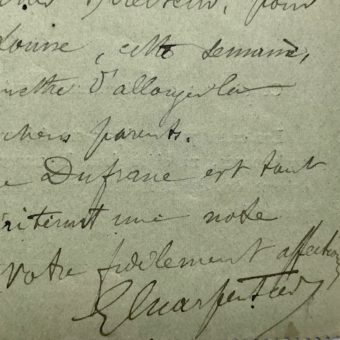 pour
Louise, cette semaine,
mettre d'allonger la
chers parents.
Dufrane est tout
une note
votre fidèlement affection
GCharpentier